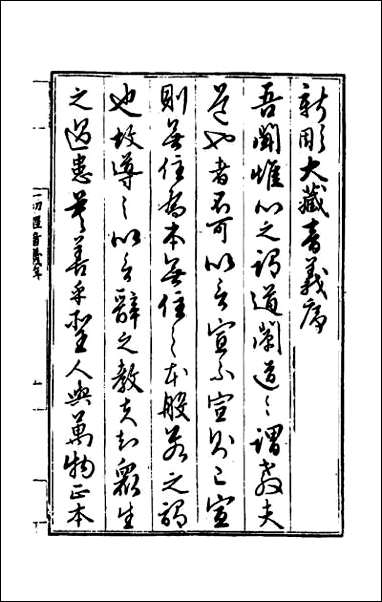 新雕大藏音義序
吾聞惟心之謂道闡道之謂教夫
道也者不可以言宣不宣則已宣
則無住為本無住之本般若之謂
也故導之以言辭之教夫知眾生
之過患莫善乎聖人與萬物正本
一切經音義序